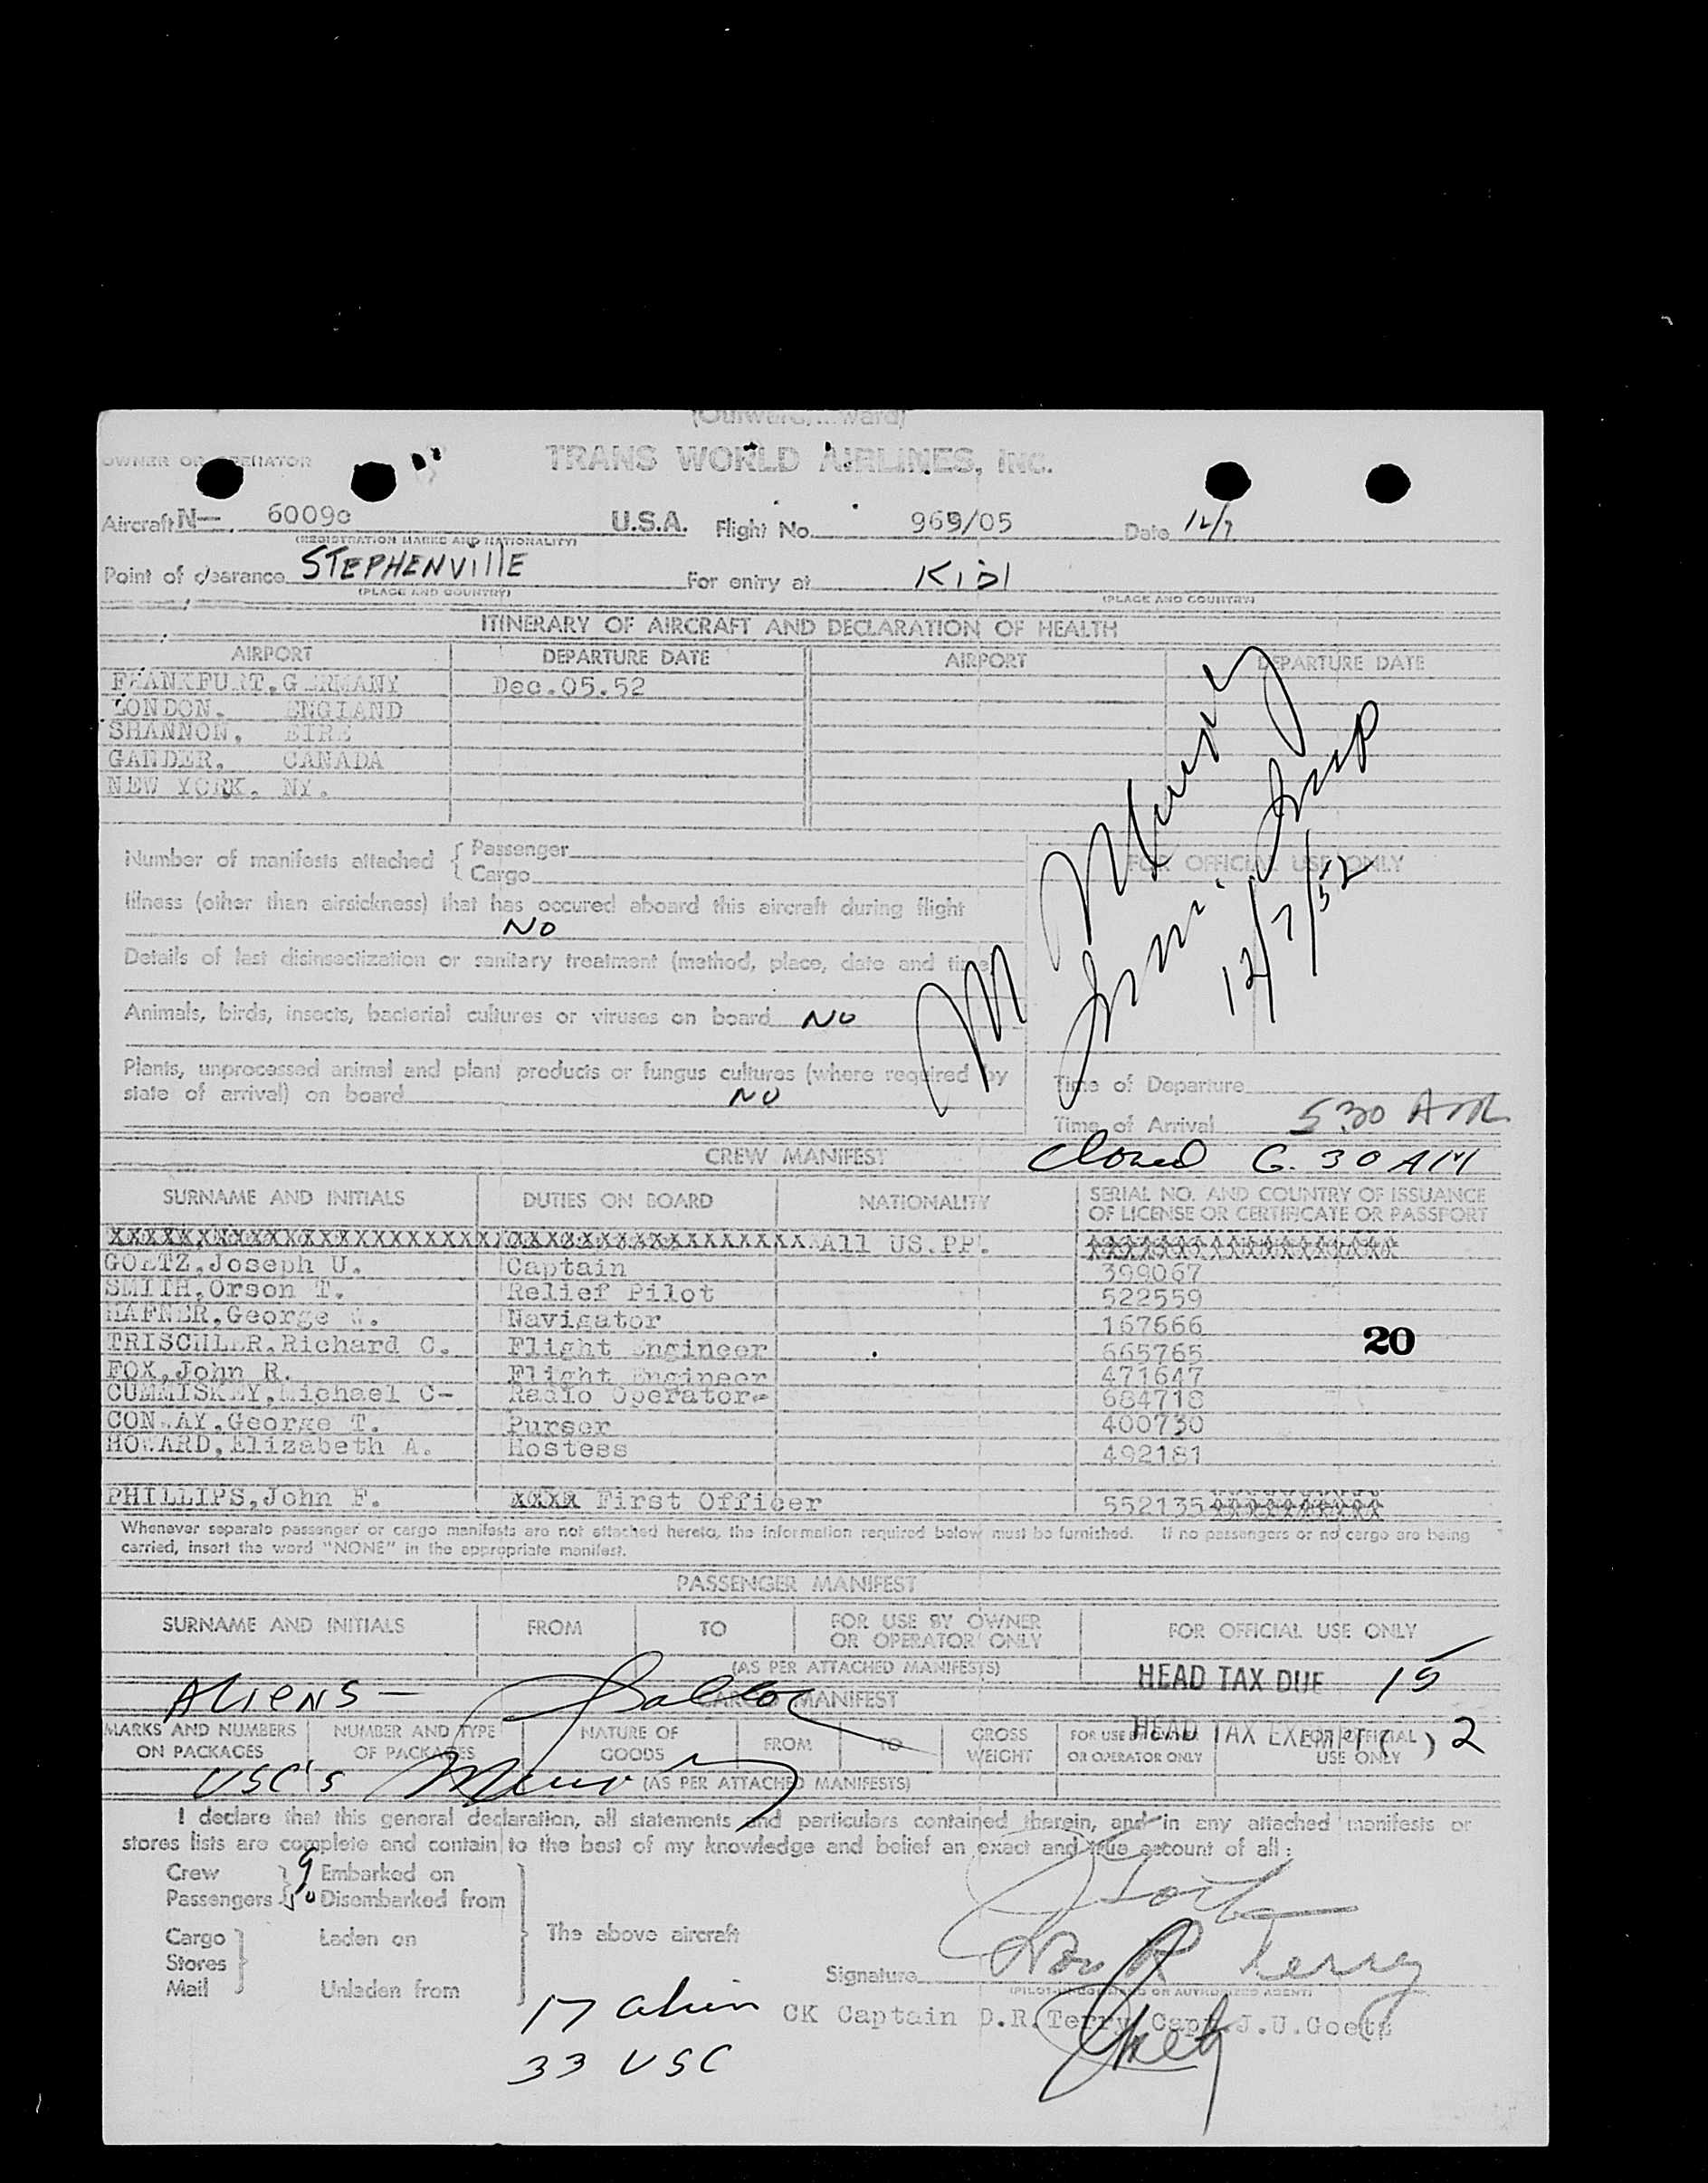 (Outward, Inward)
OWNER OR OPERATOR TRANS WORLD AIRLINES, INC.
Aircraft N— 60090 U.S.A. Flight No. 969/05 Date 12/7
(REGISTRATION MARKS AND NATIONALITY)
Point of clearance STEPHENVIllE For entry at KIDl
(PLACE AND COUNTRY) (PLACE AND COUNTRY)
ITINERARY OF AIRCRAFT AND DECLARATION OF HEALTH
AIRPORT DEPARTURE DATE AIRPORT DEPARTURE DATE
FRANKFURT,GERMANY Dec.05.52
LONDON, ENGLAND
SHANNON, EIRE
GANDER, CANADA
NEW YORK, NY.
Number of manifests attached { Passenger
Cargo
FOR OFFICIAL USE ONLY
Illness (other than airsickness) that has occured aboard this aircraft during flight
NO
Details of last disinsectization or sanitary treatment (method, place, date and time)
Animals, birds, insects, bacterial cultures or viruses on board NO
Plants, unprocessed animal and plant products or fungus cultures (where required by
state of arrival) on board NO
M Murray
Immi. Insp
12/7/52
Time of Departure
Time of Arrival 5 30 AM
Closed 6.30 AM
CREW MANIFEST
SURNAME AND INITIALS DUTIES ON BOARD NATIONALITY SERIAL NO. AND COUNTRY OF ISSUANCE
OF LICENSE OR CERTIFICATE OR PASSPORT
All US.PP.
GOETZ,Joseph U. Captain 399067
SMITH,Orson T. Relief Pilot 522559
HAFNER,George W. Navigator 167666
TRISCHLER,Richard C. Flight Engineer 665765
20
FOX,John R. Flight Engineer 471647
CUMMISKEY,Michael C- Radio Operator- 684718
CONWAY,George T. Purser 400730
HOWARD,Elizabeth A. Hostess 492181
PHILLIPS,John F. xxxx First Officer 552135
Whenever separate passenger or cargo manifests are not attached hereto, the information required below must be furnished. If no passengers or no cargo are being
carried, insert the word "NONE" in the appropriate manifest.
PASSENGER MANIFEST
SURNAME AND INITIALS FROM TO FOR USE BY OWNER
OR OPERATOR ONLY FOR OFFICIAL USE ONLY
(AS PER ATTACHED MANIFESTS)
HEAD TAX DUE 15
ALIENS —
CARGO MANIFEST
HEAD TAX EXEMPT ( ) 2
MARKS AND NUMBERS
ON PACKAGES NUMBER AND TYPE
OF PACKAGES NATURE OF
GOODS FROM TO GROSS
WEIGHT FOR USE BY OWNER
OR OPERATOR ONLY FOR OFFICIAL
USE ONLY
USC's Murray (AS PER ATTACHED MANIFESTS)
I declare that this general declaration, all statements and particulars contained therein, and in any attached manifests or
stores lists are complete and contain to the best of my knowledge and belief an exact and true account of all:
Crew 9 Embarked on
Passengers 50 Disembarked from
Cargo Laden on The above aircraft
Stores
Mail Unladen from
JGoetz
Don R Terry
Signature
(PILOT-IN-COMMAND OR AUTHORIZED AGENT)
CK Captain D.R.Terry Capt.J.U.Goetz
JGoetz
17 alien
33 USC